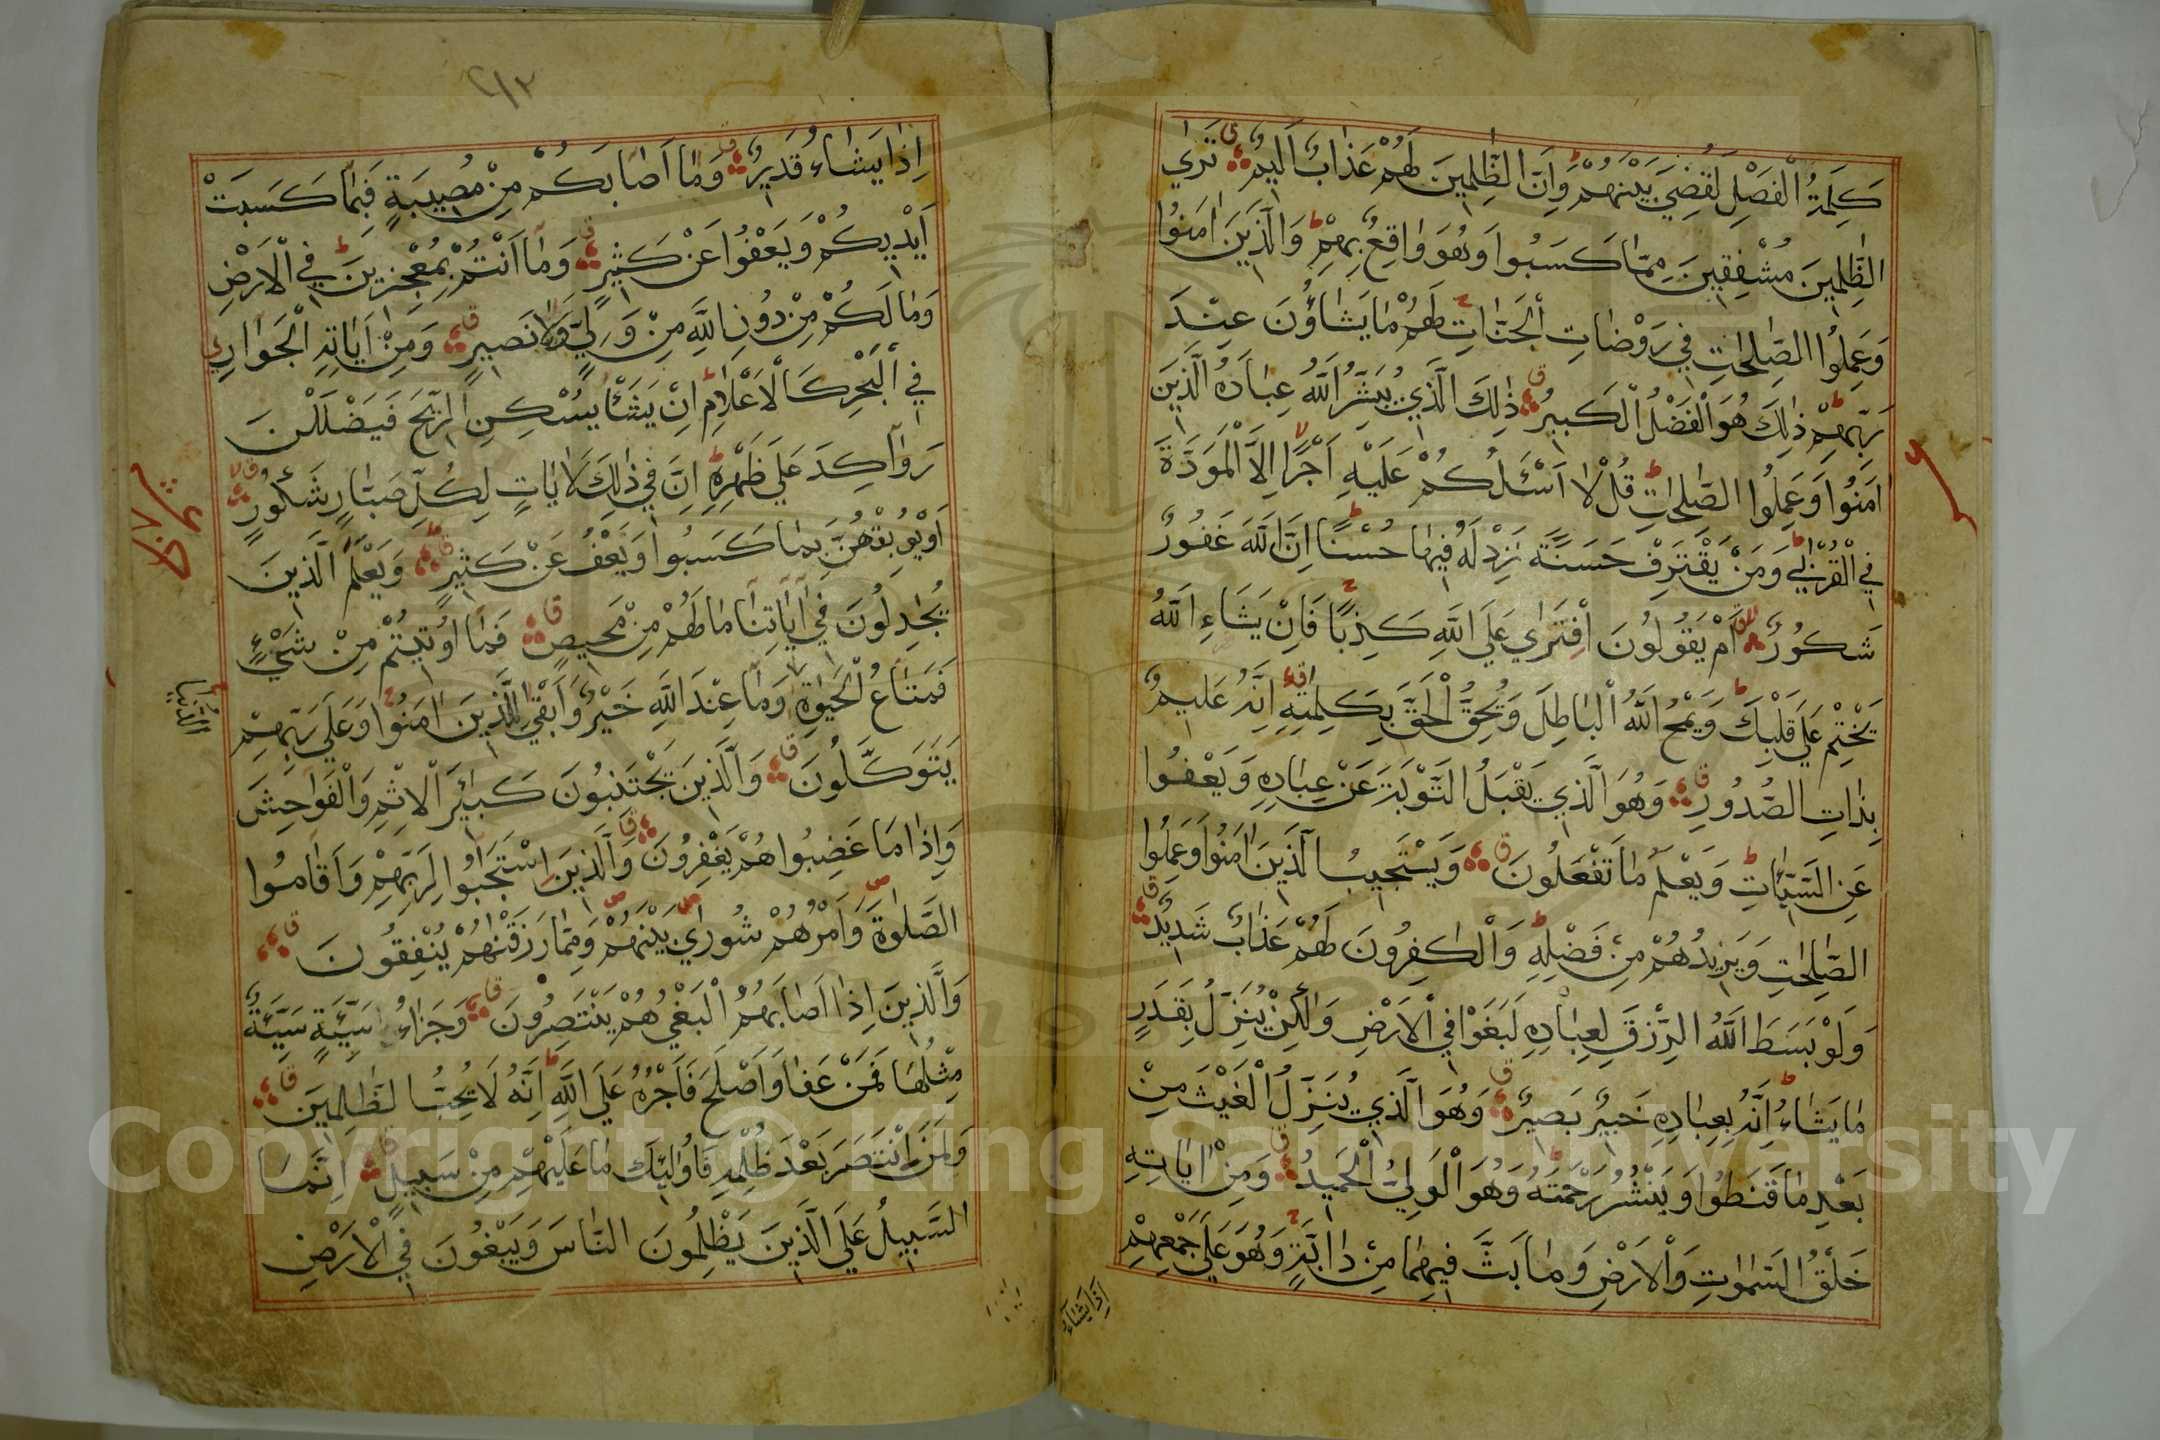 كَلِمَةُ الْفَصْلِ لَقُضِيَ بَيْنَهُمْ وَاِنَّ الظّٰلِمِينَ لَهُمْ عَذَابٌ اَلِيمٌ تَرَي
الظّٰلِمِينَ مُشْفِقِينَ مِمَّا كَسَبُوا وَهُوَ وَاقِعٌ بِهِمْ وَالَّذِينَ اٰمَنُوا
وَعَمِلُوا الصّٰلِحٰتِ فِي رَوْضَاتِ الْجَنَّاتِ لَهُمْ مَا يَشَاؤُنَ عِنْدَ
رَبِّهِمْ ذٰلِكَ هُوَ الْفَضْلُ الْكَبِيرُ ذٰلِكَ الَّذِي يُبَشِّرُ اللّٰهُ عِبَادَهُ الَّذِينَ
اٰمَنُوا وَعَمِلُوا الصّٰلِحٰتِ قُلْ لَا اَسْئَلُكُمْ عَلَيْهِ اَجْرًا اِلَّا الْمَوَدَّةَ
فِي الْقُرْبٰي وَمَنْ يَقْتَرِفْ حَسَنَةً نَزِدْ لَهُ فِيهَا حُسْنًا اِنَّ اللّٰهَ غَفُورٌ
شَكُورٌ اَمْ يَقُولُونَ افْتَرٰي عَلَي اللّٰهِ كَذِبًا فَاِنْ يَشَاءِ اللّٰهُ
يَخْتِمْ عَلَي قَلْبِكَ وَيَمْحُ اللّٰهُ الْبَاطِلَ وَيُحِقُّ الْحَقَّ بِكَلِمٰتِهِ اِنَّهُ عَلِيمٌ
بِذَاتِ الصُّدُورِ وَهُوَ الَّذِي يَقْبَلُ التَّوْبَةَ عَنْ عِبَادِهِ وَيَعْفُوا
عَنِ السَّيِّاٰتِ وَيَعْلَمُ مَا تَفْعَلُونَ وَيَسْتَجِيبُ الَّذِينَ اٰمَنُوا وَعَمِلُوا
الصّٰلِحٰتِ وَيَزِيدُهُمْ مِنْ فَضْلِهِ وَالْكٰفِرُونَ لَهُمْ عَذَابٌ شَدِيدٌ
وَلَوْ بَسَطَ اللّٰهُ الرِّزْقَ لِعِبَادِهِ لَبَغَوْا فِي الْاَرْضِ وَلٰكِنْ يُنَزِّلُ بِقَدَرٍ
مَا يَشَاءُ اِنَّهُ بِعِبَادِهِ خَبِيرٌ بَصِيرٌ وَهُوَ الَّذِي يُنَزِّلُ الْغَيْثَ مِنْ
بَعْدِ مَا قَنَطُوا وَيَنْشُرُ رَحْمَتَهُ وَهُوَ الْوَلِيُّ الْحَمِيدُ وَمِنْ اٰيَاتِهِ
خَلْقُ السَّمٰوٰتِ وَالْاَرْضِ وَمَا بَثَّ فِيهِمَا مِنْ دَابَّةٍ وَهُوَ عَلَي جَمْعِهِمْ
اِذَا يَشَاءُ
٢١٣
اِذَا يَشَاءُ قَدِيرٌ وَمَا اَصَابَكُمْ مِنْ مُصِيبَةٍ فَبِمَا كَسَبَتْ
اَيْدِيكُمْ وَيَعْفُوا عَنْ كَثِيرٍ وَمَا اَنْتُمْ بِمُعْجِزِينَ فِي الْاَرْضِ
وَمَا لَكُمْ مِنْ دُونِ اللّٰهِ مِنْ وَلِيٍّ وَلَا نَصِيرٍ وَمِنْ اٰيَاتِهِ الْجَوَارِ
فِي الْبَحْرِ كَالْاَعْلَامِ اِنْ يَشَأْ يُسْكِنِ الرِّيحَ فَيَضْلَلْنَ
رَوَاكِدَ عَلَي ظَهْرِهِ اِنَّ فِي ذٰلِكَ لَاٰيَاتٍ لِكُلِّ صَبَّارٍ شَكُورٍ
اَوْ يُوبِقْهُنَّ بِمَا كَسَبُوا وَيَعْفُ عَنْ كَثِيرٍ وَيَعْلَمَ الَّذِينَ
يُجَادِلُونَ فِي اٰيَاتِنَا مَا لَهُمْ مِنْ مَحِيصٍ فَمَا اُوتِيتُمْ مِنْ شَيْءٍ
فَمَتَاعُ الْحَيٰوةِ وَمَا عِنْدَ اللّٰهِ خَيْرٌ وَاَبْقٰي لِلَّذِينَ اٰمَنُوا وَعَلَي رَبِّهِمْ
الدُّنْيَا
يَتَوَكَّلُونَ وَالَّذِينَ يَجْتَنِبُونَ كَبَائِرَ الْاِثْمِ وَالْفَوَاحِشَ
وَاِذَا مَا غَضِبُوا هُمْ يَغْفِرُونَ وَالَّذِينَ اسْتَجَابُوا لِرَبِّهِمْ وَاَقَامُوا
الصَّلٰوةَ وَاَمْرُهُمْ شُورٰي بَيْنَهُمْ وَمِمَّا رَزَقْنٰهُمْ يُنْفِقُونَ
وَالَّذِينَ اِذَا اَصَابَهُمُ الْبَغْيُ هُمْ يَنْتَصِرُونَ وَجَزَاءُ سَيِّئَةٍ سَيِّئَةٌ
مِثْلُهَا فَمَنْ عَفَا وَاَصْلَحَ فَاَجْرُهُ عَلَي اللّٰهِ اِنَّهُ لَا يُحِبُّ الظّٰلِمِينَ
وَلَمَنِ انْتَصَرَ بَعْدَ ظُلْمِهِ فَاُولٰئِكَ مَا عَلَيْهِمْ مِنْ سَبِيلٍ اِنَّمَا
السَّبِيلُ عَلَي الَّذِينَ يَظْلِمُونَ النَّاسَ وَيَبْغُونَ فِي الْاَرْضِ
Copyright © King Saud University